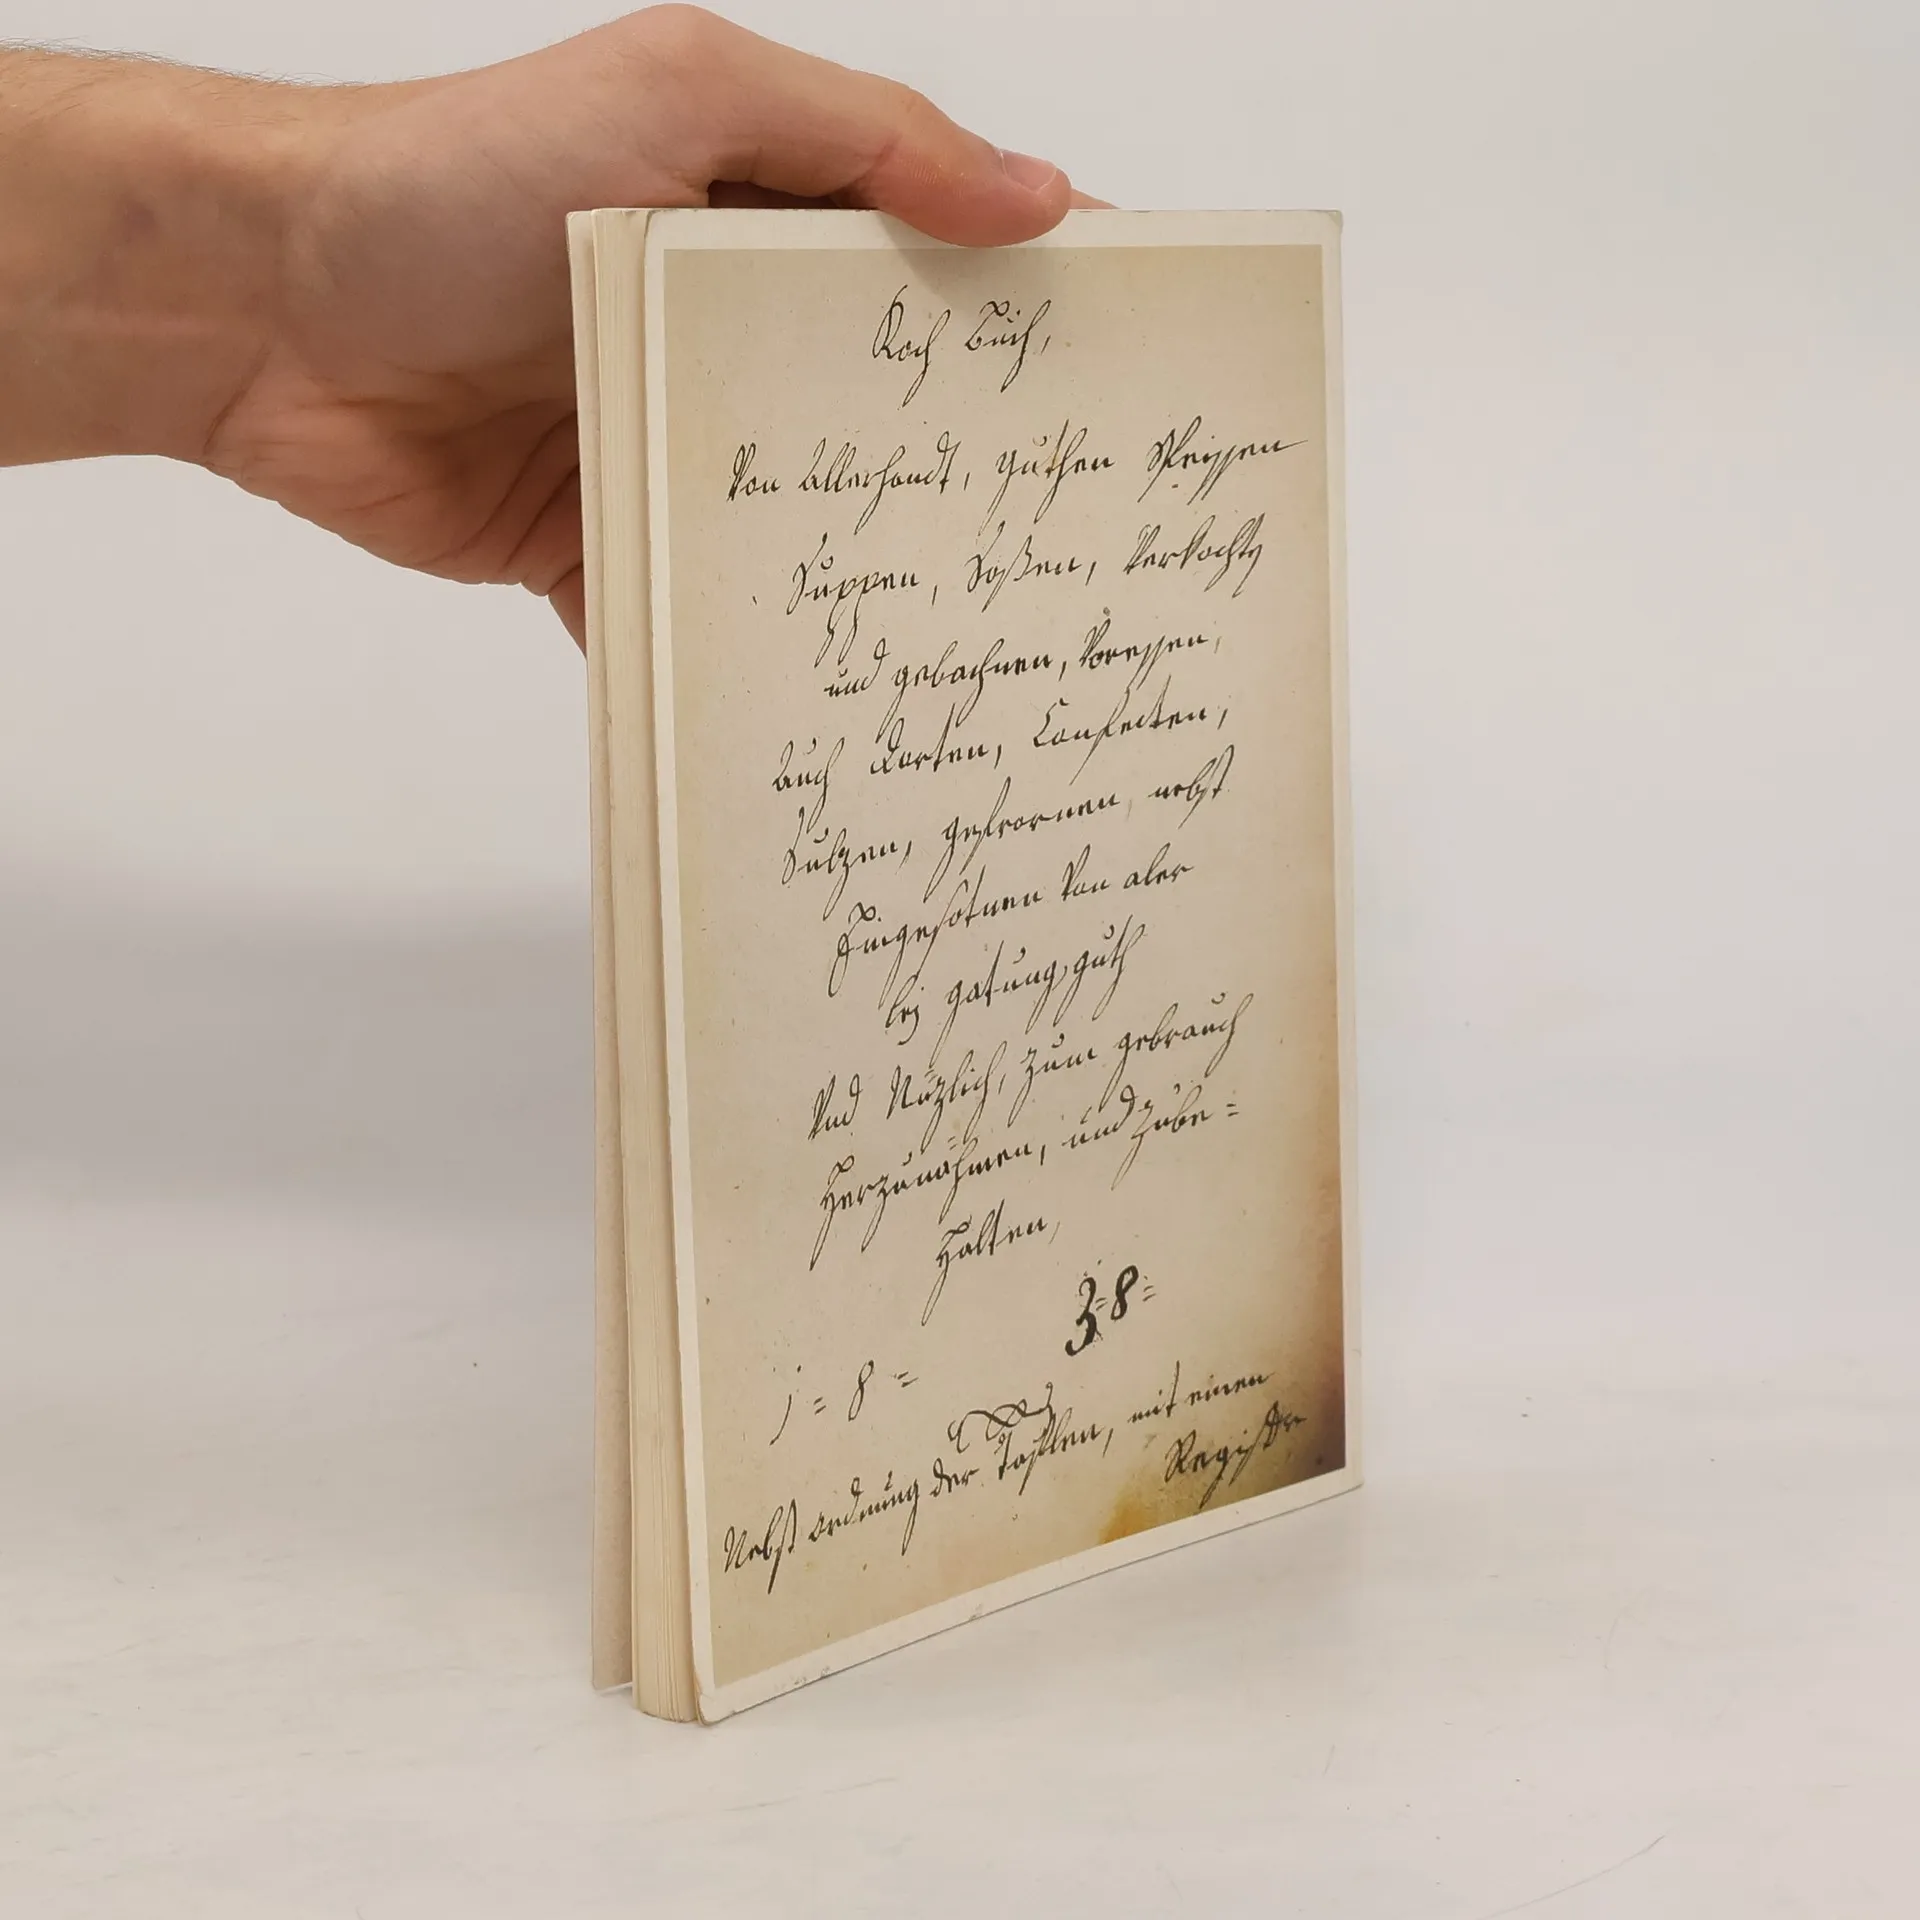 Koch Buch,
Von Allerhandt, guthen Speissen
Suppen, Soßen, Verkochty
und gebachnen, Voressen,
Auch Dorten, Confecten,
Sulzen, gefrornen, nebst
Eingesotnen Von aler
ley gatung guth
Vnd Nüzlich, zum gebrauch
Herzunähmen, und Zube=
Halten,
3=8=
j=8=
Nebst ordnung der Tafflen, mit einen
Register